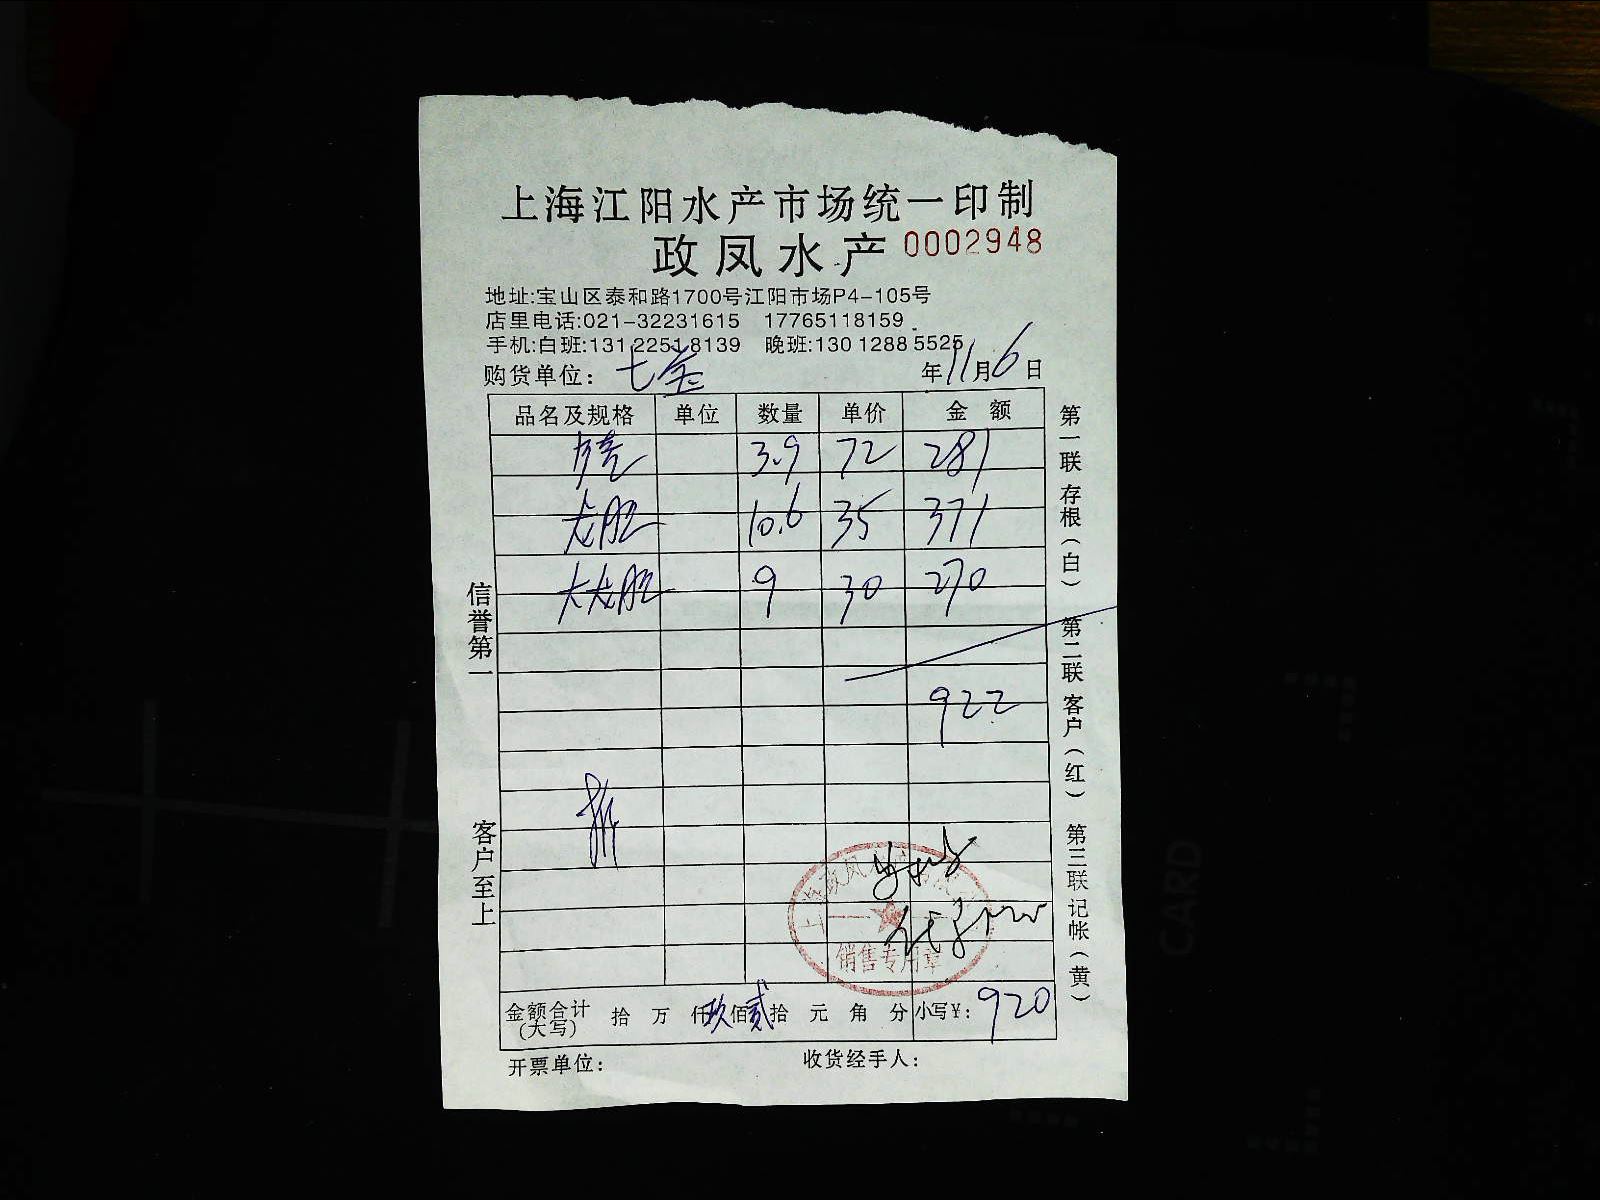 上海江阳水产市场统一印制
政凤水产 0002948
地址:宝山区泰和路1700号江阳市场P4-105号
店里电话:021-32231615 17765118159
手机:白班:131 2251 8139 晚班:130 1288 5525
购货单位: 七宝 年11月6日
品名及规格 单位 数量 单价 金额
3.9 72 281
龙胆 10.6 35 371
大龙胆 9 30 270
922
信誉第一
客户至上
第一联存根(白)
第二联客户(红)
第三联记帐(黄)
上海政凤水产
销售专用章
金额合计(大写) 拾 万 仟玖佰贰拾 元 角 分 小写¥: 920
开票单位: 收货经手人: